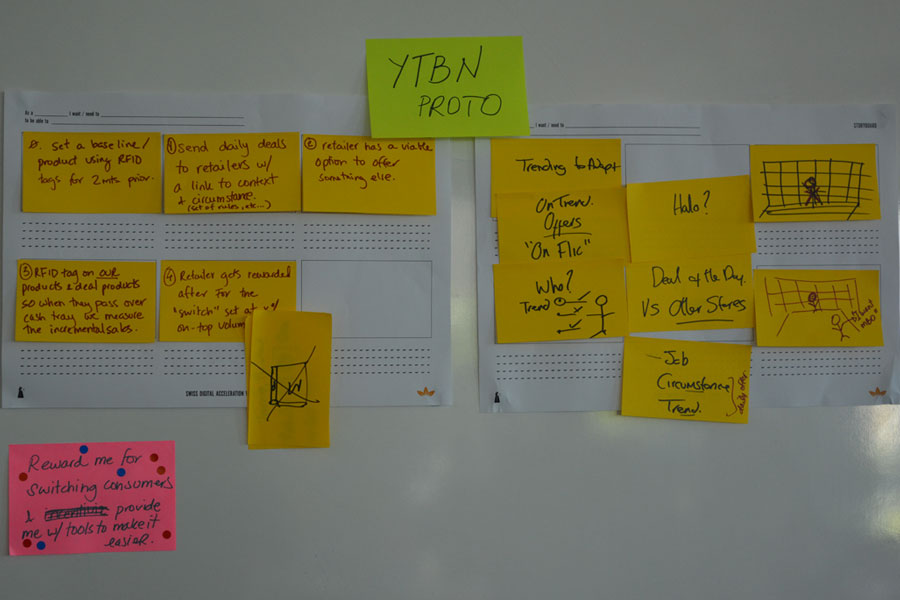 YTBN
PROTO
As a ________, I want / need to
to be able to
0. Set a baseline/
product using RFID
tags for 2mts. prior.
1 send daily deals
to retailers w/
a link to context
& circumstance.
(set of rules, etc...)
2 retailer has a viable
option to offer
something else.
3 RFID tag on our
products & deal products
so when they pass over
cash tray we measure
the incremental sales.
4 Retailer gets rewarded
after for the
"switch" set at
on-top volum
SWISS DIGITAL ACCELERATION
I want / need to
STORYBOARD
Trending to Adapt
On Trend.
Offers
"On Flic"
Halo?
Who?
Trend
Deal of the Day
Vs Other Stores
Job
Circumstance
Trend.
daily offer
Reward me for
switching consumers
& provide
me w/ tools to make it
easier.